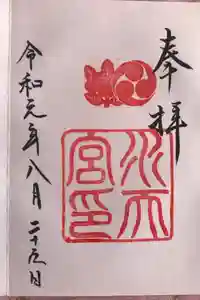 奉拝
水天
宮印
令和元年八月二十五日